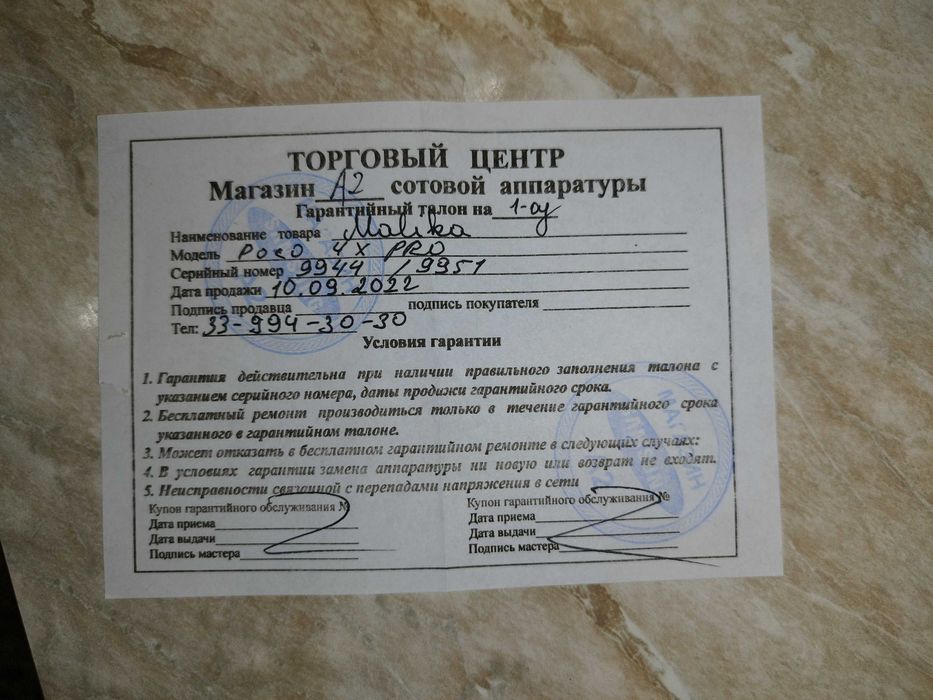 ТОРГОВЫЙ ЦЕНТР
Магазин A2 сотовой аппаратуры
Гарантийный талон на 1-oy
Наименование товара Malika
Модель POCO 4X PRO
Серийный номер 9944 / 9951
Дата продажи 10.09.2022
Подпись продавца подпись покупателя
Тел: 33-994-30-30
Условия гарантии
1. Гарантия действительна при наличии правильного заполнения талона с
указанием серийного номера, даты продажи гарантийного срока.
2. Бесплатный ремонт производиться только в течение гарантийного срока
указанного в гарантийном талоне.
3. Может отказать в бесплатном гарантийном ремонте в следующих случаях:
4. В условиях гарантии замена аппаратуры ни новую или возврат не входят.
5. Неисправности связанной с перепадами напряжения в сети
Купон гарантийного обслуживания № Купон гарантийного обслуживания №
Дата приема Дата приема
Дата выдачи Дата выдачи
Подпись мастера Подпись мастера